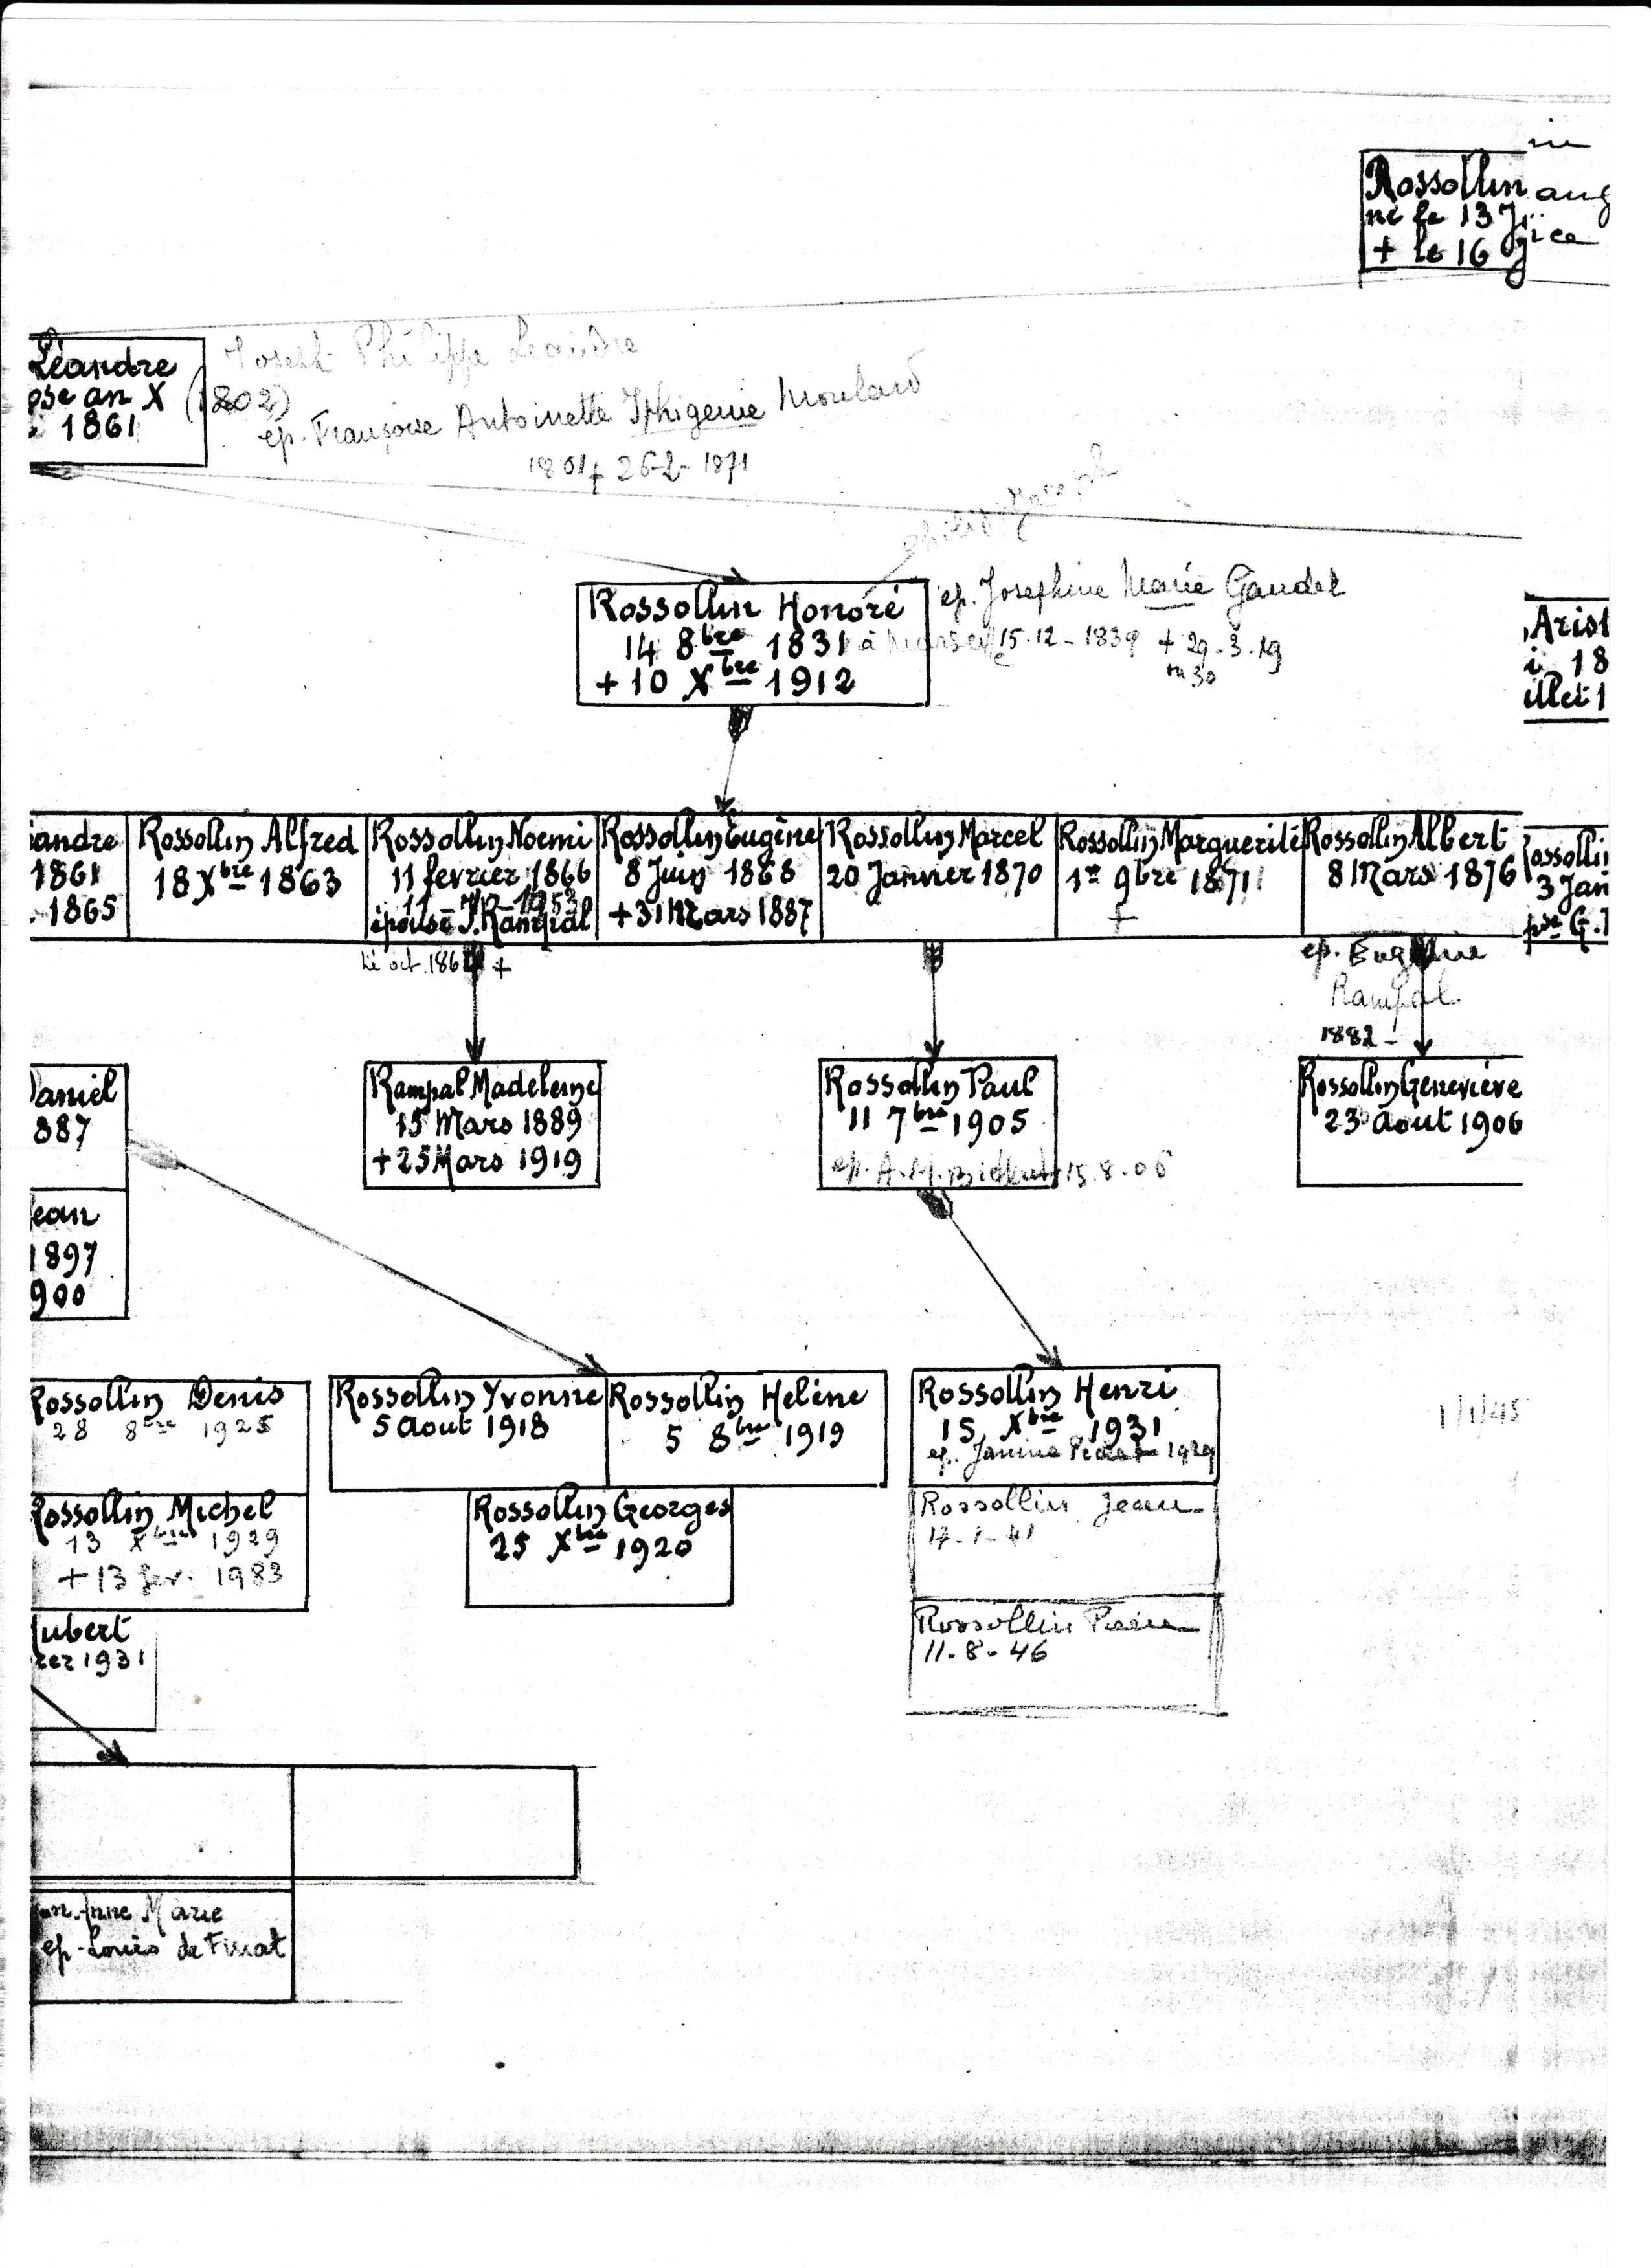 Rossollin aug
né le 13
+ le 16
Léandre
an X (1802)
1861
Joseph Philippe Leandre
ép. Françoise Antoinette Iphigenie Moulard
1801 + 26-2-1871
Rossollin Honoré
14 8bre 1831
+ 10 Xbre 1912
ep. Josephine Marie Gaudet
à Marseille 15-12-1839 + 29-3-19
ou 30
Arist
18
illet 1
andre
1861
1865
Rossollin Alfred
18 Xbre 1863
Rossollin Noemi
11 fevrier 1866
épouse J. Rampal
né oct. 186 +
Rossollin Eugène
8 Juin 1868
+ 31 Mars 1887
Rossollin Marcel
20 Janvier 1870
Rossollin Marguerite
1er 9bre 1871
+
Rossollin Albert
8 Mars 1876
ep. Eugénie
Rampal
1882 -
ossollin
3 Jan
G.
Daniel
887
ean
1897
900
Rampal Madeleine
15 Mars 1889
+ 25 Mars 1919
Rossollin Paul
11 7bre 1905
ep. A.M. 15.8.06
Rossollin Geneviève
23 Aout 1906
Rossollin Denis
28 8bre 1925
Rossollin Michel
13 Xbre 1929
+ 13 fev. 1983
ubert
1931
Rossollin Yvonne
5 Aout 1918
Rossollin Hélène
5 8bre 1919
Rossollin Georges
25 Xbre 1920
Rossollin Henri
15 Xbre 1931
ep. Janine 1929
Rossollin Jean
17-1-41
Rossollin Pierre
11-8-46
1/1/45
Anne Marie
ep. Louis de Finat